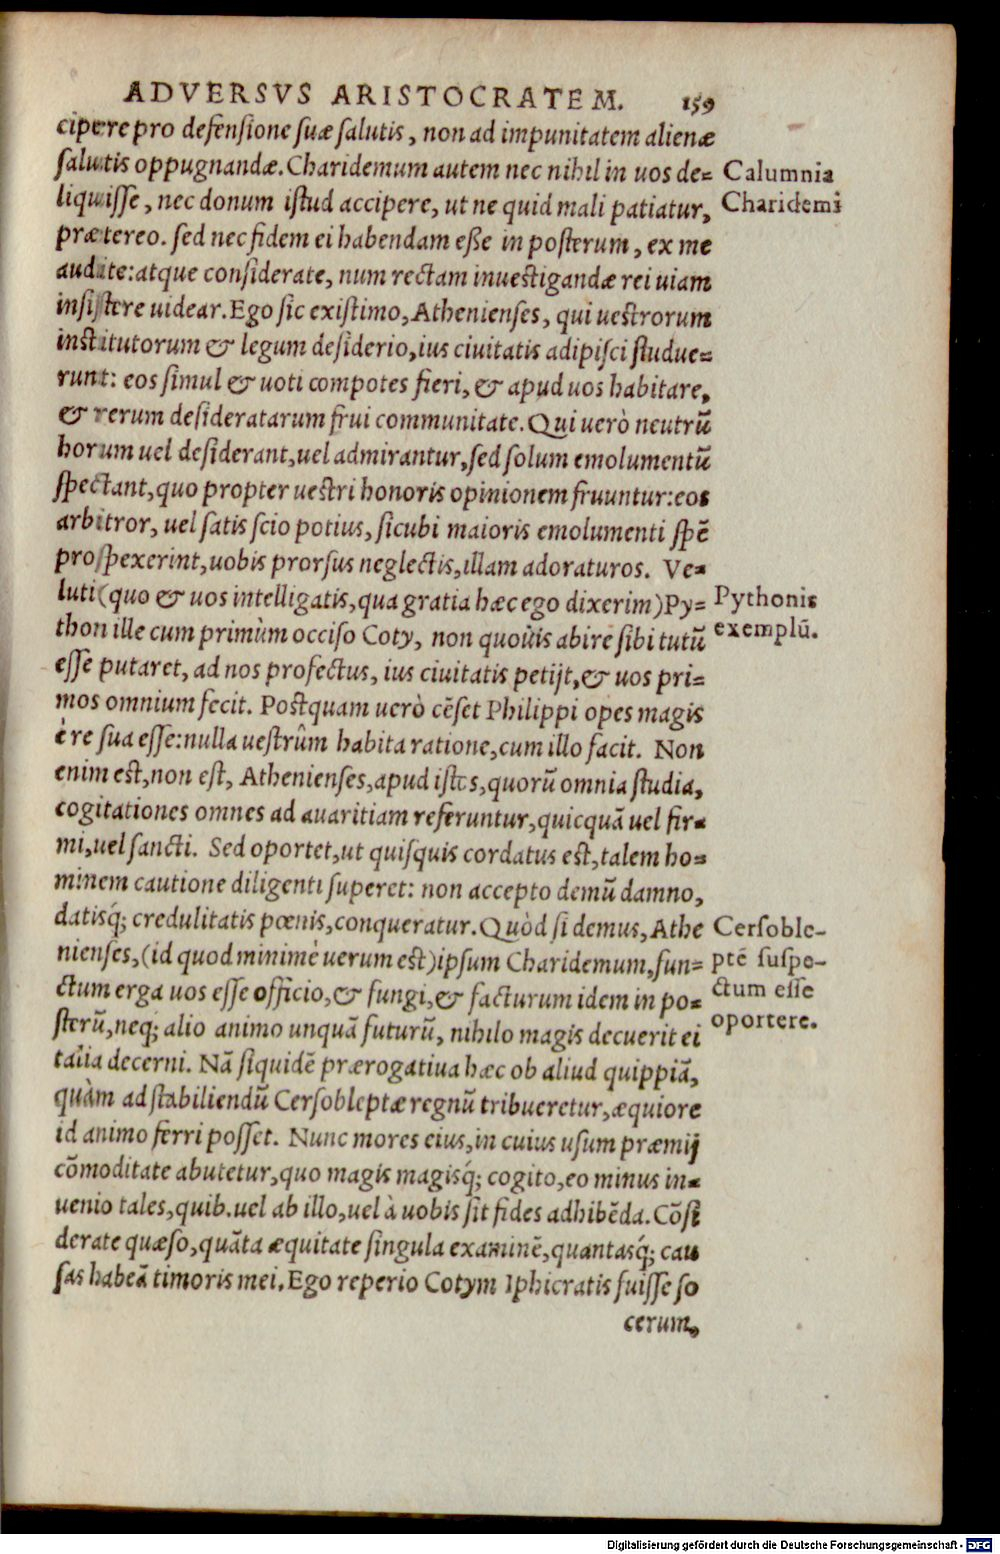 ADVERSVS ARISTOCRATEM. 159
cipere pro defensione suæ salutis, non ad impunitatem alienæ
salutis oppugnandæ. Charidemum autem nec nihil in uos de=
liquisse, nec donum istud accipere, ut ne quid mali patiatur,
prætereo. sed nec fidem ei habendam esse in posterum, ex me
audite: atque considerate, num rectam inuestigandæ rei uiam
insistere uidear. Ego sic existimo, Athenienses, qui uestrorum
institutorum & legum desiderio, ius ciuitatis adipisci studue=
runt: eos simul & uoti compotes fieri, & apud uos habitare,
& rerum desideratarum frui communitate. Qui uerò neutrū
horum uel desiderant, uel admirantur, sed solum emolumentū
spectant, quo propter uestri honoris opinionem fruuntur: eos
arbitror, uel satis scio potius, sicubi maioris emolumenti spē
prospexerint, uobis prorsus neglectis, illam adoraturos. Ve=
luti (quo & uos intelligatis, qua gratia hæc ego dixerim) Py=
thon ille cum primùm occiso Coty, non quouis abire sibi tutū
esse putaret, ad nos profectus, ius ciuitatis petijt, & uos pri=
mos omnium fecit. Postquam uerò cēset Philippi opes magis
è re sua esse: nulla uestrûm habita ratione, cum illo facit. Non
enim est, non est, Athenienses, apud istos, quorū omnia studia,
cogitationes omnes ad auaritiam referuntur, quicquā uel fir=
mi, uel sancti. Sed oportet, ut quisquis cordatus est, talem ho=
minem cautione diligenti superet: non accepto demū damno,
datisq́; credulitatis pœnis, conqueratur. Quòd si demus, Athe
nienses, (id quod minimè uerum est) ipsum Charidemum, fun=
ctum erga uos esse officio, & fungi, & facturum idem in po=
sterū, neq; alio animo unquā futurū, nihilo magis decuerit ei
talia decerni. Nā siquidē prærogatiua hæc ob aliud quippiā,
quàm ad stabiliendū Cersobleptæ regnū tribueretur, æquiore
id animo ferri posset. Nunc mores eius, in cuius usum præmij
cōmoditate abutetur, quo magis magisq́; cogito, eo minus in=
uenio tales, quib. uel ab illo, uel à uobis sit fides adhibēda. Cōsi
derate quæso, quāta æquitate singula examinē, quantasq́; cau
sas habeā timoris mei. Ego reperio Cotym Iphicratis fuisse so
cerum,
Calumnia
Charidemi
Pythonis
exemplū.
Cersoble-
ptē suspe-
ctum esse
oportere.
Digitalisierung gefördert durch die Deutsche Forschungsgemeinschaft - DFG